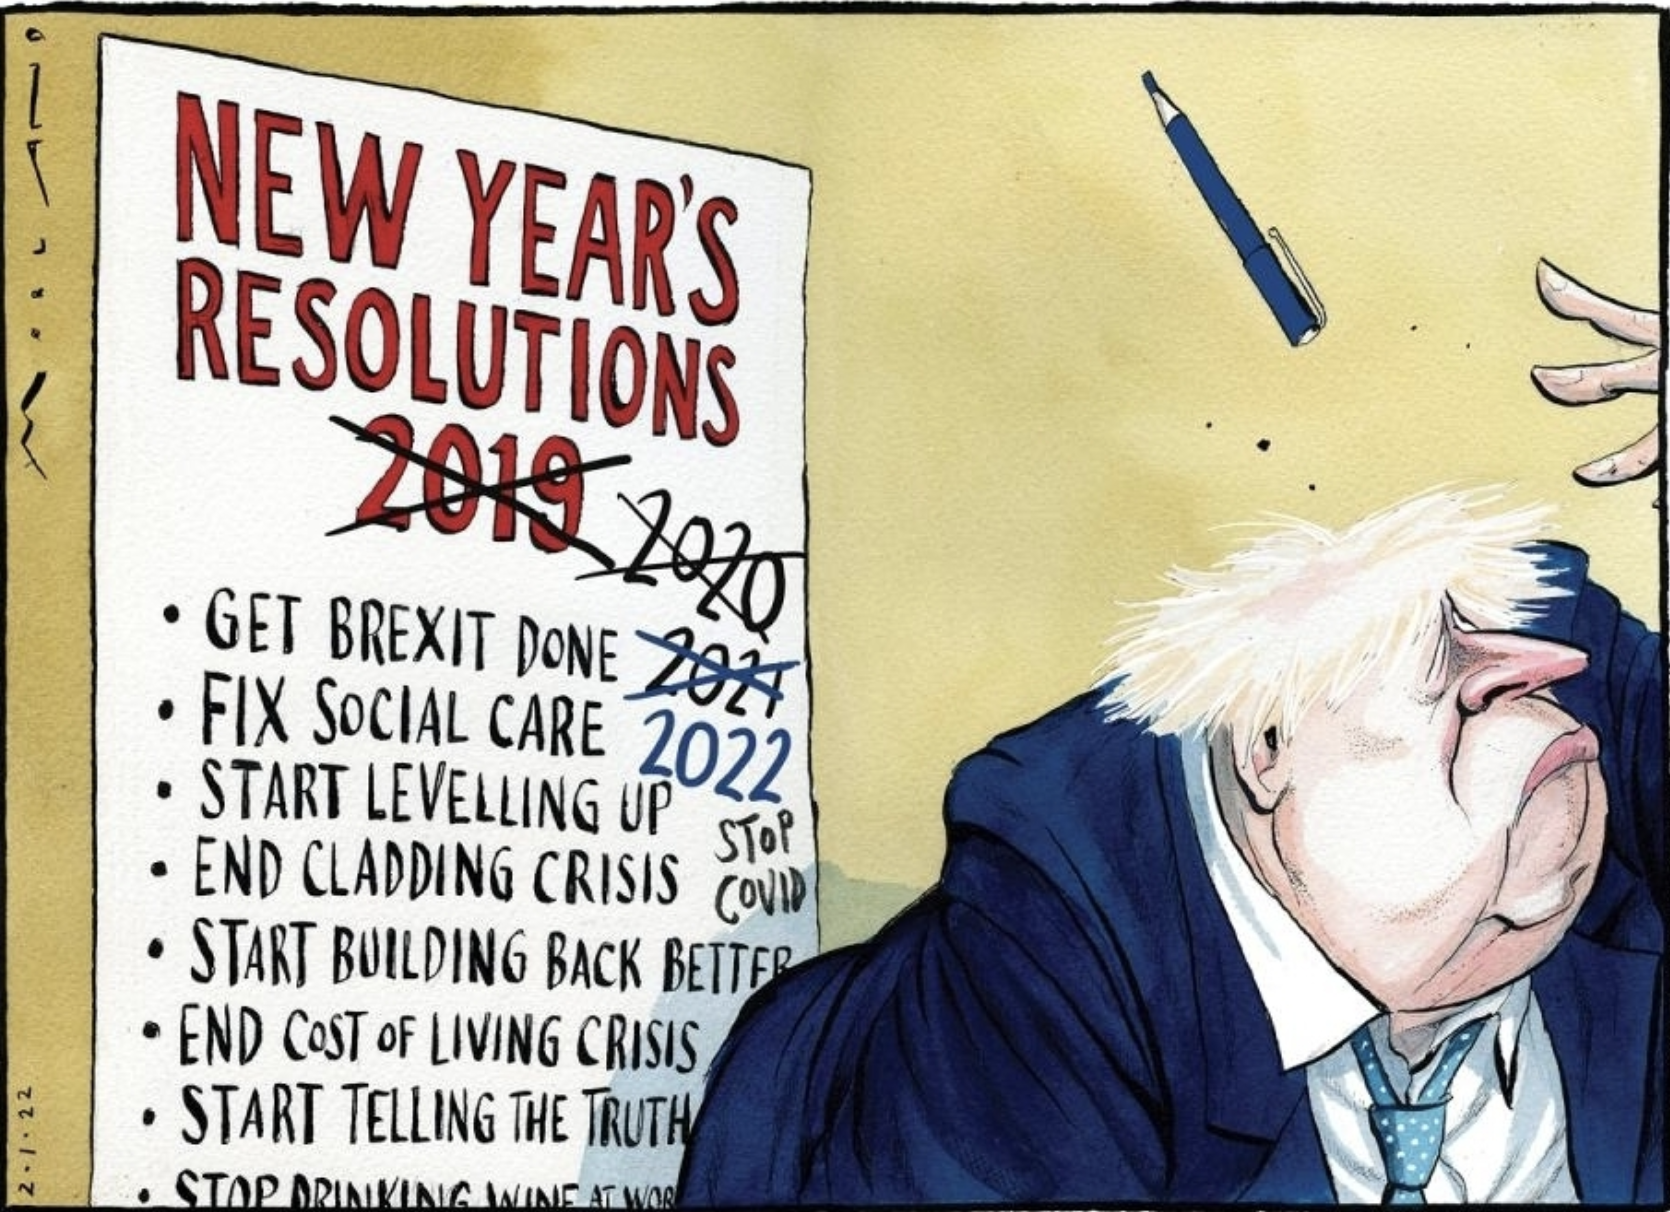 MORLAND
NEW YEAR'S
RESOLUTIONS
2019
2020
• GET BREXIT DONE
2021
• FIX SOCIAL CARE
2022
• START LEVELLING UP
STOP
COVID
• END CLADDING CRISIS
• START BUILDING BACK BETTER
• END COST OF LIVING CRISIS
• START TELLING THE TRUTH
• STOP DRINKING WINE AT WOR
2·1·22